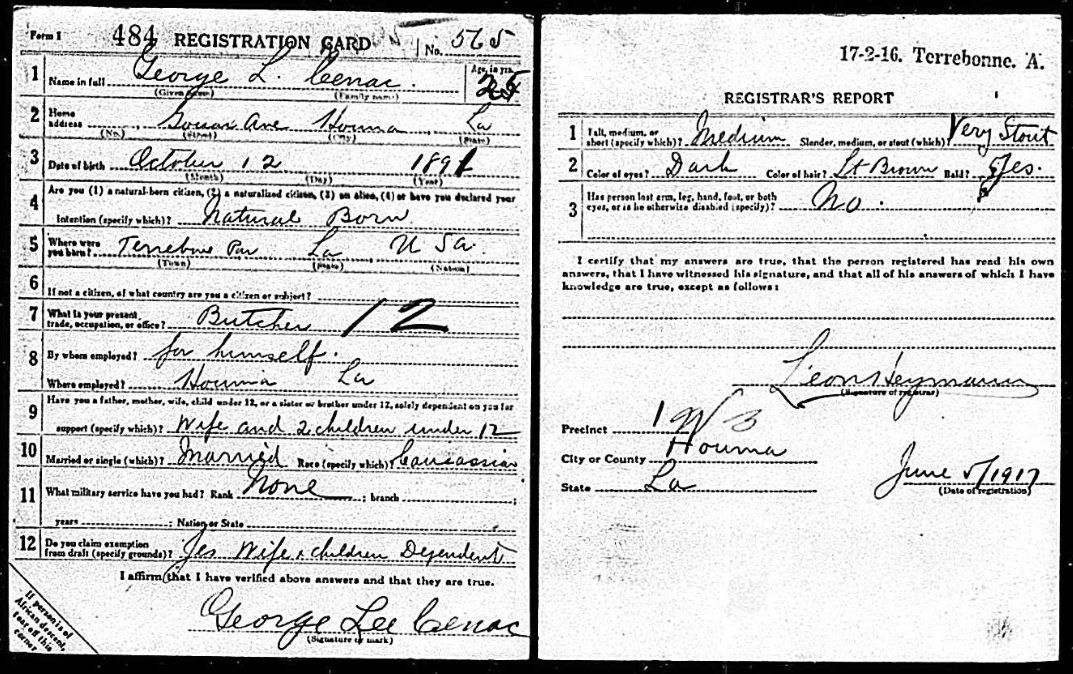 Form 1 484 REGISTRATION CARD No. 565
1 Name in full George L. Cenac. Age, in yrs. 25
(Given name) (Family name)
2 Home address Gouax Ave Houma La
(No.) (Street) (City) (State)
3 Date of birth October 12 1891
(Month) (Day) (Year)
4 Are you (1) a natural-born citizen, (2) a naturalized citizen, (3) an alien, (4) or have you declared your
Intention (specify which)? Natural Born
5 Where were you born? Terrebone Par La U Sa.
(Town) (State) (Nation)
6 If not a citizen, of what country are you a citizen or subject?
7 What is your present trade, occupation, or office? Butcher 12
8 By whom employed? for himself.
Where employed? Houma La
9 Have you a father, mother, wife, child under 12, or a sister or brother under 12, solely dependent on you for
support (specify which)? Wife and 2 children under 12
10 Married or single (which)? Married Race (specify which)? Caucassian
11 What military service have you had? Rank None ; branch ;
years ; Nation or State
12 Do you claim exemption from draft (specify grounds)? Yes Wife & children Dependent
I affirm that I have verified above answers and that they are true.
George Lee Cenac
(Signature or mark)
If person is of
African descent,
tear off this
corner
17-2-16. Terrebonne. A.
REGISTRAR'S REPORT
1 Tall, medium, or short (specify which)? Medium Slender, medium, or stout (which)? Very Stout
2 Color of eyes? Dark Color of hair? Lt Brown Bald? Yes.
3 Has person lost arm, leg, hand, foot, or both eyes, or is he otherwise disabled (specify)? No.
I certify that my answers are true, that the person registered has read his own
answers, that I have witnessed his signature, and that all of his answers of which I have
knowledge are true, except as follows:
Leon Heymann
(Signature of registrar)
Precinct 1 W 3
City or County Houma
State La
June 5/1917
(Date of registration)